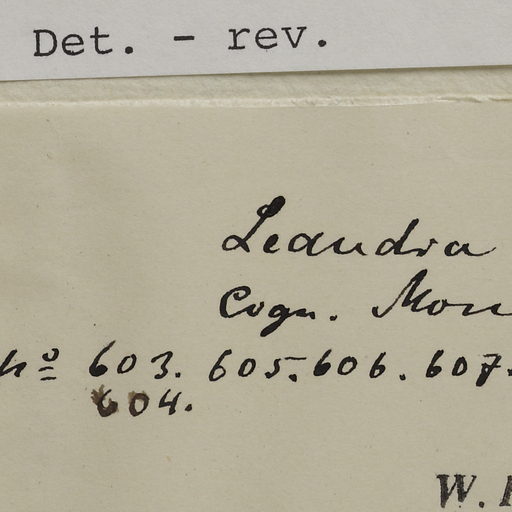 Det. - rev.
Leandra
Cogn. Mon
No 603. 605. 606. 607.
604.
W.